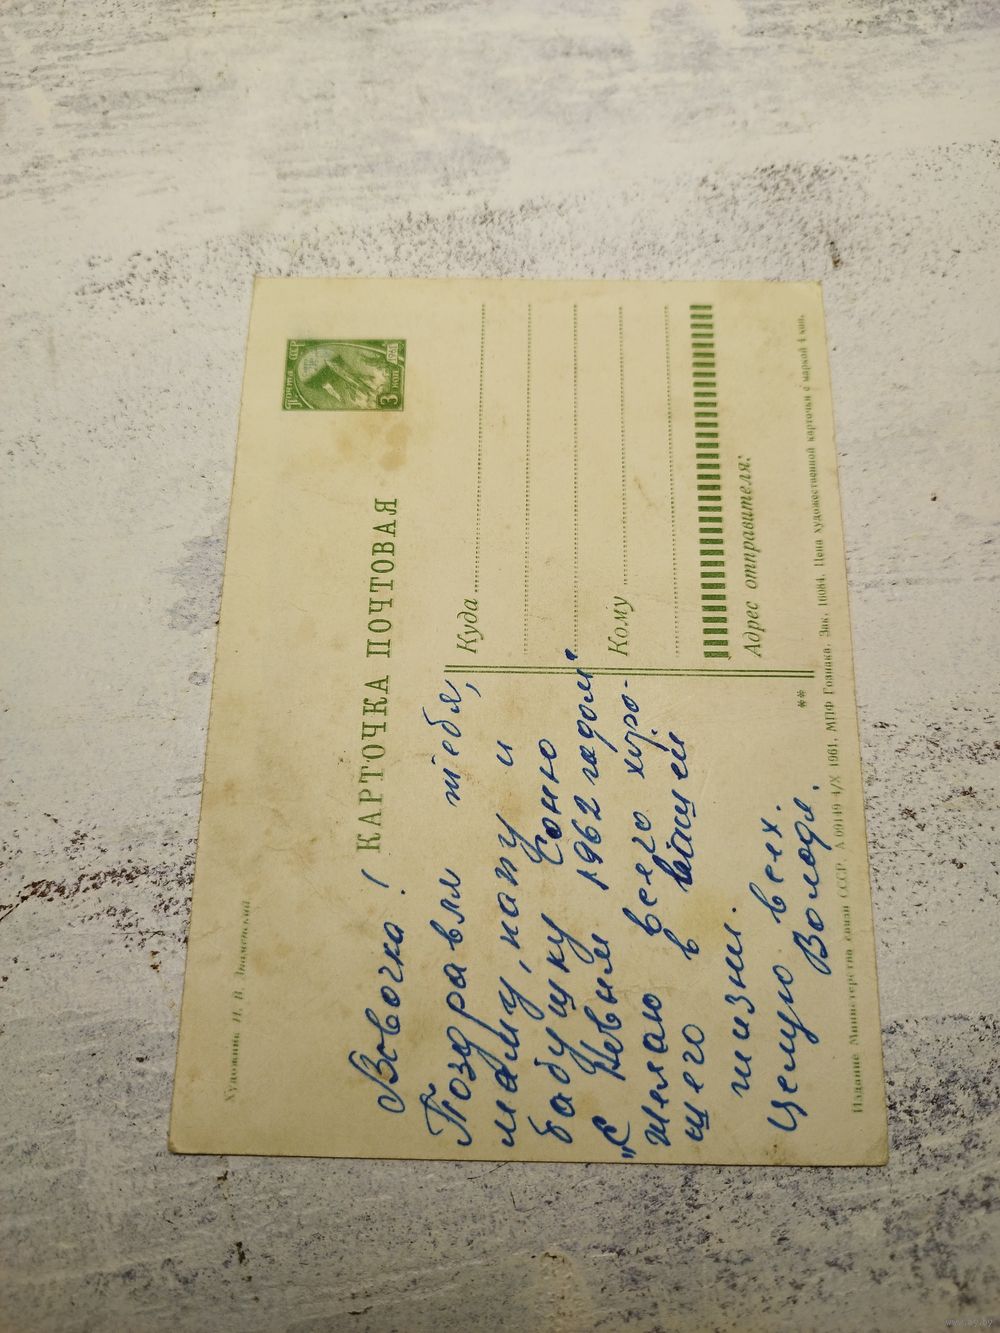 Художник И. В. Знаменский
КАРТОЧКА ПОЧТОВАЯ
Почта СССР
3 коп
1961
Вовочка!
Поздравля тебя,
маму, папу и
бабушку Соню
"С Новым 1962 годом"
желаю всего хоро-
щего в вашей
жизни.
Целую всех.
Володя.
Куда
Кому
Адрес отправителя:
**
Издание Министерства связи СССР. А 09149 4/X 1961. МПФ Гознака. Зак. 16084. Цена художественной карточки с маркой 4 коп.
www.ay.by